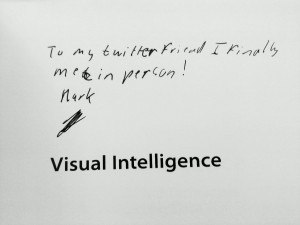 To my twitter Friend I Finally
met in person!
Mark
Visual Intelligence